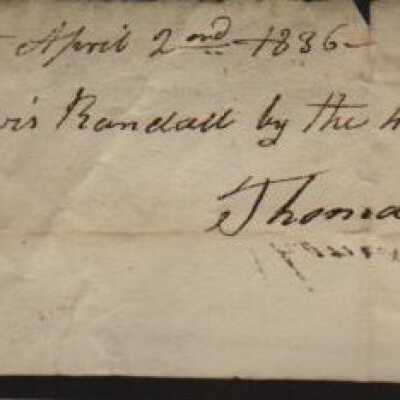 April 2nd 1836
is Randall by the
Thoma